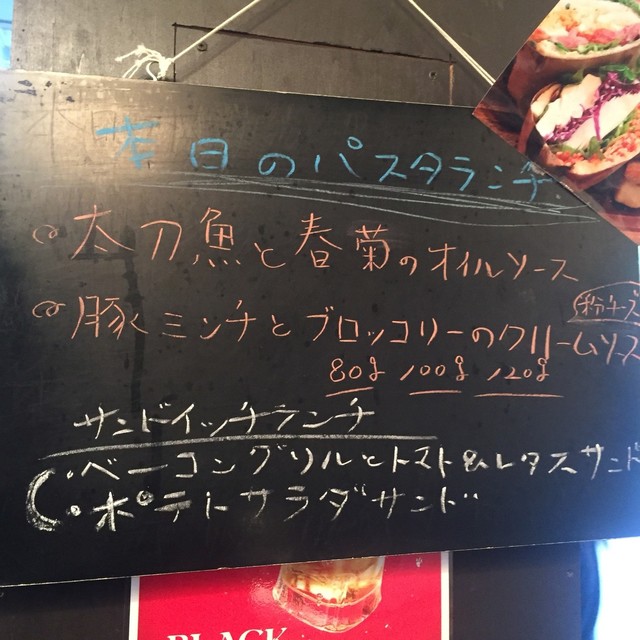 本日のパスタランチ
太刀魚と春菊のオイルソース
粉チーズ
豚ミンチとブロッコリーのクリームソース
80g 100g 120g
サンドイッチランチ
・ベーコングリルとトマト&レタスサンド
・ポテトサラダサンド
BLACK